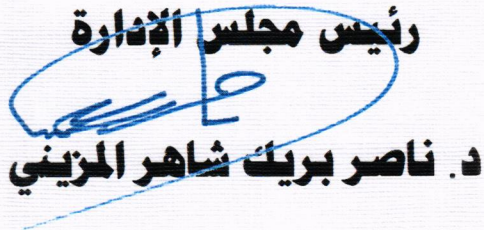 رئيس مجلس الإدارة
د. ناصر بريك شاهر المزيني